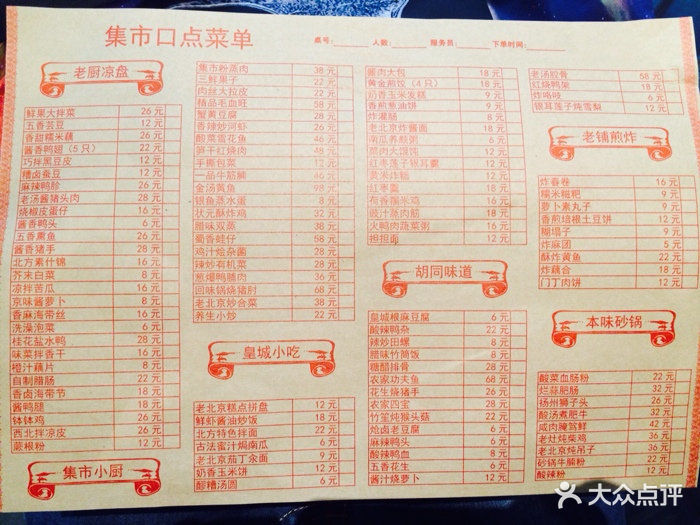 集市口点菜单
桌号: 人数: 服务员: 下单时间:
老厨凉盘
鲜果大拌菜 26 元
五香芸豆 12 元
香甜糯米藕 26 元
酱香鸭翅（5只） 22 元
巧拌黑豆皮 12 元
糟卤蚕豆 12 元
麻辣鸭胗 26 元
老汤酱猪头肉 28 元
烧椒皮蛋仔 16 元
酱香鸭头 6 元
五香熏鱼 26 元
酱香猪手 28 元
北方素什锦 16 元
芥末白菜 8 元
凉拌苦瓜 16 元
京味酱萝卜 8 元
香麻海带丝 16 元
洗澡泡菜 8 元
桂花盐水鸭 28 元
味菜拌香干 16 元
橙汁藕片 8 元
自制腊肠 22 元
香卤海带节 18 元
酱鸭腿 18 元
钵钵鸡 26 元
西北拌凉皮 12 元
蕨根粉 12 元
集市小厨
集市粉蒸肉 38 元
三鲜果子 22 元
肉丝大拉皮 22 元
精品毛血旺 58 元
蟹黄豆腐 28 元
香辣炒河虾 26 元
酸菜蛋花鱼 46 元
笋干红烧肉 48 元
手撕包菜 12 元
一品牛筋腩 46 元
金汤黄鱼 98 元
银鱼蒸水蛋 8 元
状元酥炸鸡 32 元
腊味双蒸 38 元
蜀香蛙仔 58 元
鸡汁烩杂菌 28 元
辣炒有机菜 28 元
葱爆鸭脯肉 36 元
回味锅烧猪肘 68 元
老北京炒合菜 38 元
养生小炒 22 元
皇城小吃
老北京糕点拼盘 12 元
鲜虾酱油炒饭 18 元
北方特色拌面 22 元
古法蜜汁焗南瓜 6 元
老北京茄丁汆面 9 元
奶香玉米饼 12 元
醪糟汤圆 6 元
酱肉大包 18 元
黄金煎饺（4只） 18 元
奶香玉米发糕 9 元
香煎葱油饼 9 元
炸灌肠 8 元
老北京炸酱面 18 元
南瓜养颜粥 6 元
羔肉大馄饨 12 元
红枣莲子银耳羹 12 元
黄米炸糕 12 元
红枣羹 18 元
荷香糯米鸡 16 元
豉汁蒸肉筋 18 元
火鸭肉蔬菜粥 16 元
担担面 12 元
胡同味道
皇城根麻豆腐 6 元
酸辣鸭杂 22 元
辣炒田螺 8 元
腊味竹筒饭 8 元
糖醋排骨 28 元
农家功夫鱼 68 元
花生烧猪手 26 元
农家四宝 28 元
竹笙炖猴头菇 22 元
炝卤老豆腐 6 元
麻辣鸭头 6 元
酸辣鸭血 8 元
五香花生 6 元
酱汁烧萝卜 12 元
老汤胶骨 58 元
红烧鸭架 18 元
炸咯吱 6 元
银耳莲子炖雪梨 12 元
老铺煎炸
炸春卷 16 元
糯米糍粑 9 元
萝卜素丸子 9 元
香煎培根土豆饼 12 元
糊塌子 9 元
炸麻团 5 元
酥炸黄鱼 22 元
炸藕合 18 元
门丁肉饼 12 元
本味砂锅
酸菜血肠粉 22 元
烂蒜肥肠 32 元
扬州狮子头 26 元
酸汤煮肥牛 32 元
咸肉腌笃鲜 42 元
老灶炖柴鸡 36 元
老北京炖吊子 36 元
砂锅牛腩粉 22 元
酸辣粉 12 元
大众点评